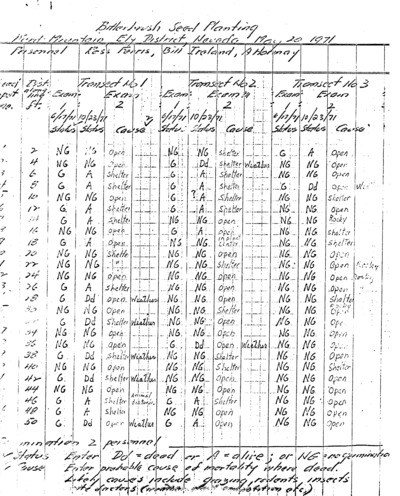 Bitterbrush Seed Planting
Mountain Ely District, Nevada May 20 1971
Personnel Les Bill Ireland, A Hormay
Dist. Transect No 1 Transect No 2 Transect No 3
ft. Exam Exam Exam Exam Exam Exam
1 2 1 2 1 2
6/17/71 10/23/71 6/17/71 10/23/71 6/17/71 10/23/71
Status Status Cause Status Status Cause Status Status Cause
2 NG NG Open NG NG Shelter G A Open
4 NG NG Open G Dd Shelter Weather NG NG Open
6 G A Shelter G A Shelter NG NG Open
8 G A Shelter G A Shelter G Dd Open
10 NG NG Open G ? A Shelter NG NG Shelter
12 G A Shelter G A Shelter NG NG Open
14 G A Shelter NG NG Open NG NG Rocky
16 NG NG Open G A Open NG NG Shelter
18 G A Open NG NG NG NG Shelter
20 NG NG Shelte NG NG Open NG NG Open
22 NG NG NG NG Shelter NG NG Open
24 NG NG Open NG NG Open NG NG Open
26 G A Shelter NG NG Open NG NG Open
28 G Dd Open Weather NG NG Open NG NG Shelter
30 NG NG Open NG NG Shelter NG NG
32 G Dd Shelter Weather NG NG Open NG NG
34 NG NG Open NG NG Open NG NG Open
36 NG NG Open G Dd Open Weather NG NG
38 G Dd Shelter Weather NG NG Shelter NG NG Open
40 NG NG Open NG NG Open NG NG Shelter
42 G Dd Shelter Weather NG NG Open NG NG Open
44 NG NG Open NG NG Open NG NG Open
46 G A Shelter G A Shelter NG NG Open
48 G A Shelter NG NG Open NG NG Open
50 G Dd Open Weather G A Open NG NG Open
mination 2 personnel
Status Enter Dd = dead or A = alive; or NG = no germination
Cause Enter probable cause of mortality where dead.
Likely causes include grazing, rodents, insects